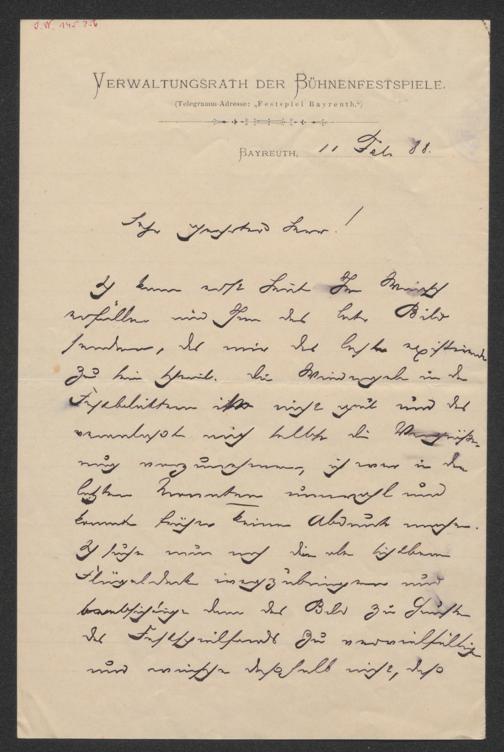 VERWALTUNGSRATH DER BÜHNENFESTSPIELE.
(Telegramm-Adresse: „Festspiel Bayreuth.“)
BAYREUTH, 11 Feb 88.
Sehr geehrter Herr!
Ich kann erst heute Ihren Wunsch
erfüllen und Ihnen das letzte Bild
senden, das mir das liebste existirende
zu sein scheint. Die Wiedergabe in den
Festblättern ist nicht gut und das
veranlasste mich selbst die Vergröße-
rung vorzunehmen, ich war in den
letzten Monaten unwohl und
konnte früher keinen Abdruck machen.
Ich suche nun noch die
Flügeldecke wegzubringen und
beabsichtige dann das Bild zu Gunsten
des Festspielfonds zu vervielfältigen
und wünsche deßhalb nicht, daß